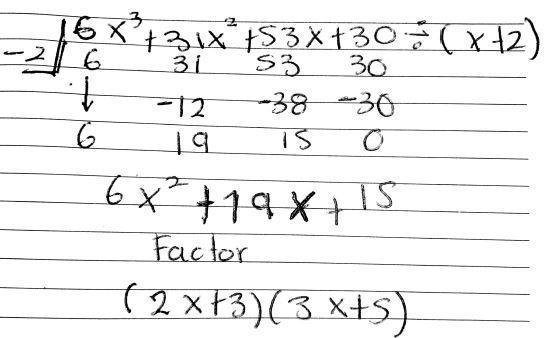 6x³+31x²+53x+30÷(x+2)
-2 6 31 53 30
↓ -12 -38 -30
6 19 15 0
6x²+19x+15
Factor
(2x+3)(3x+5)